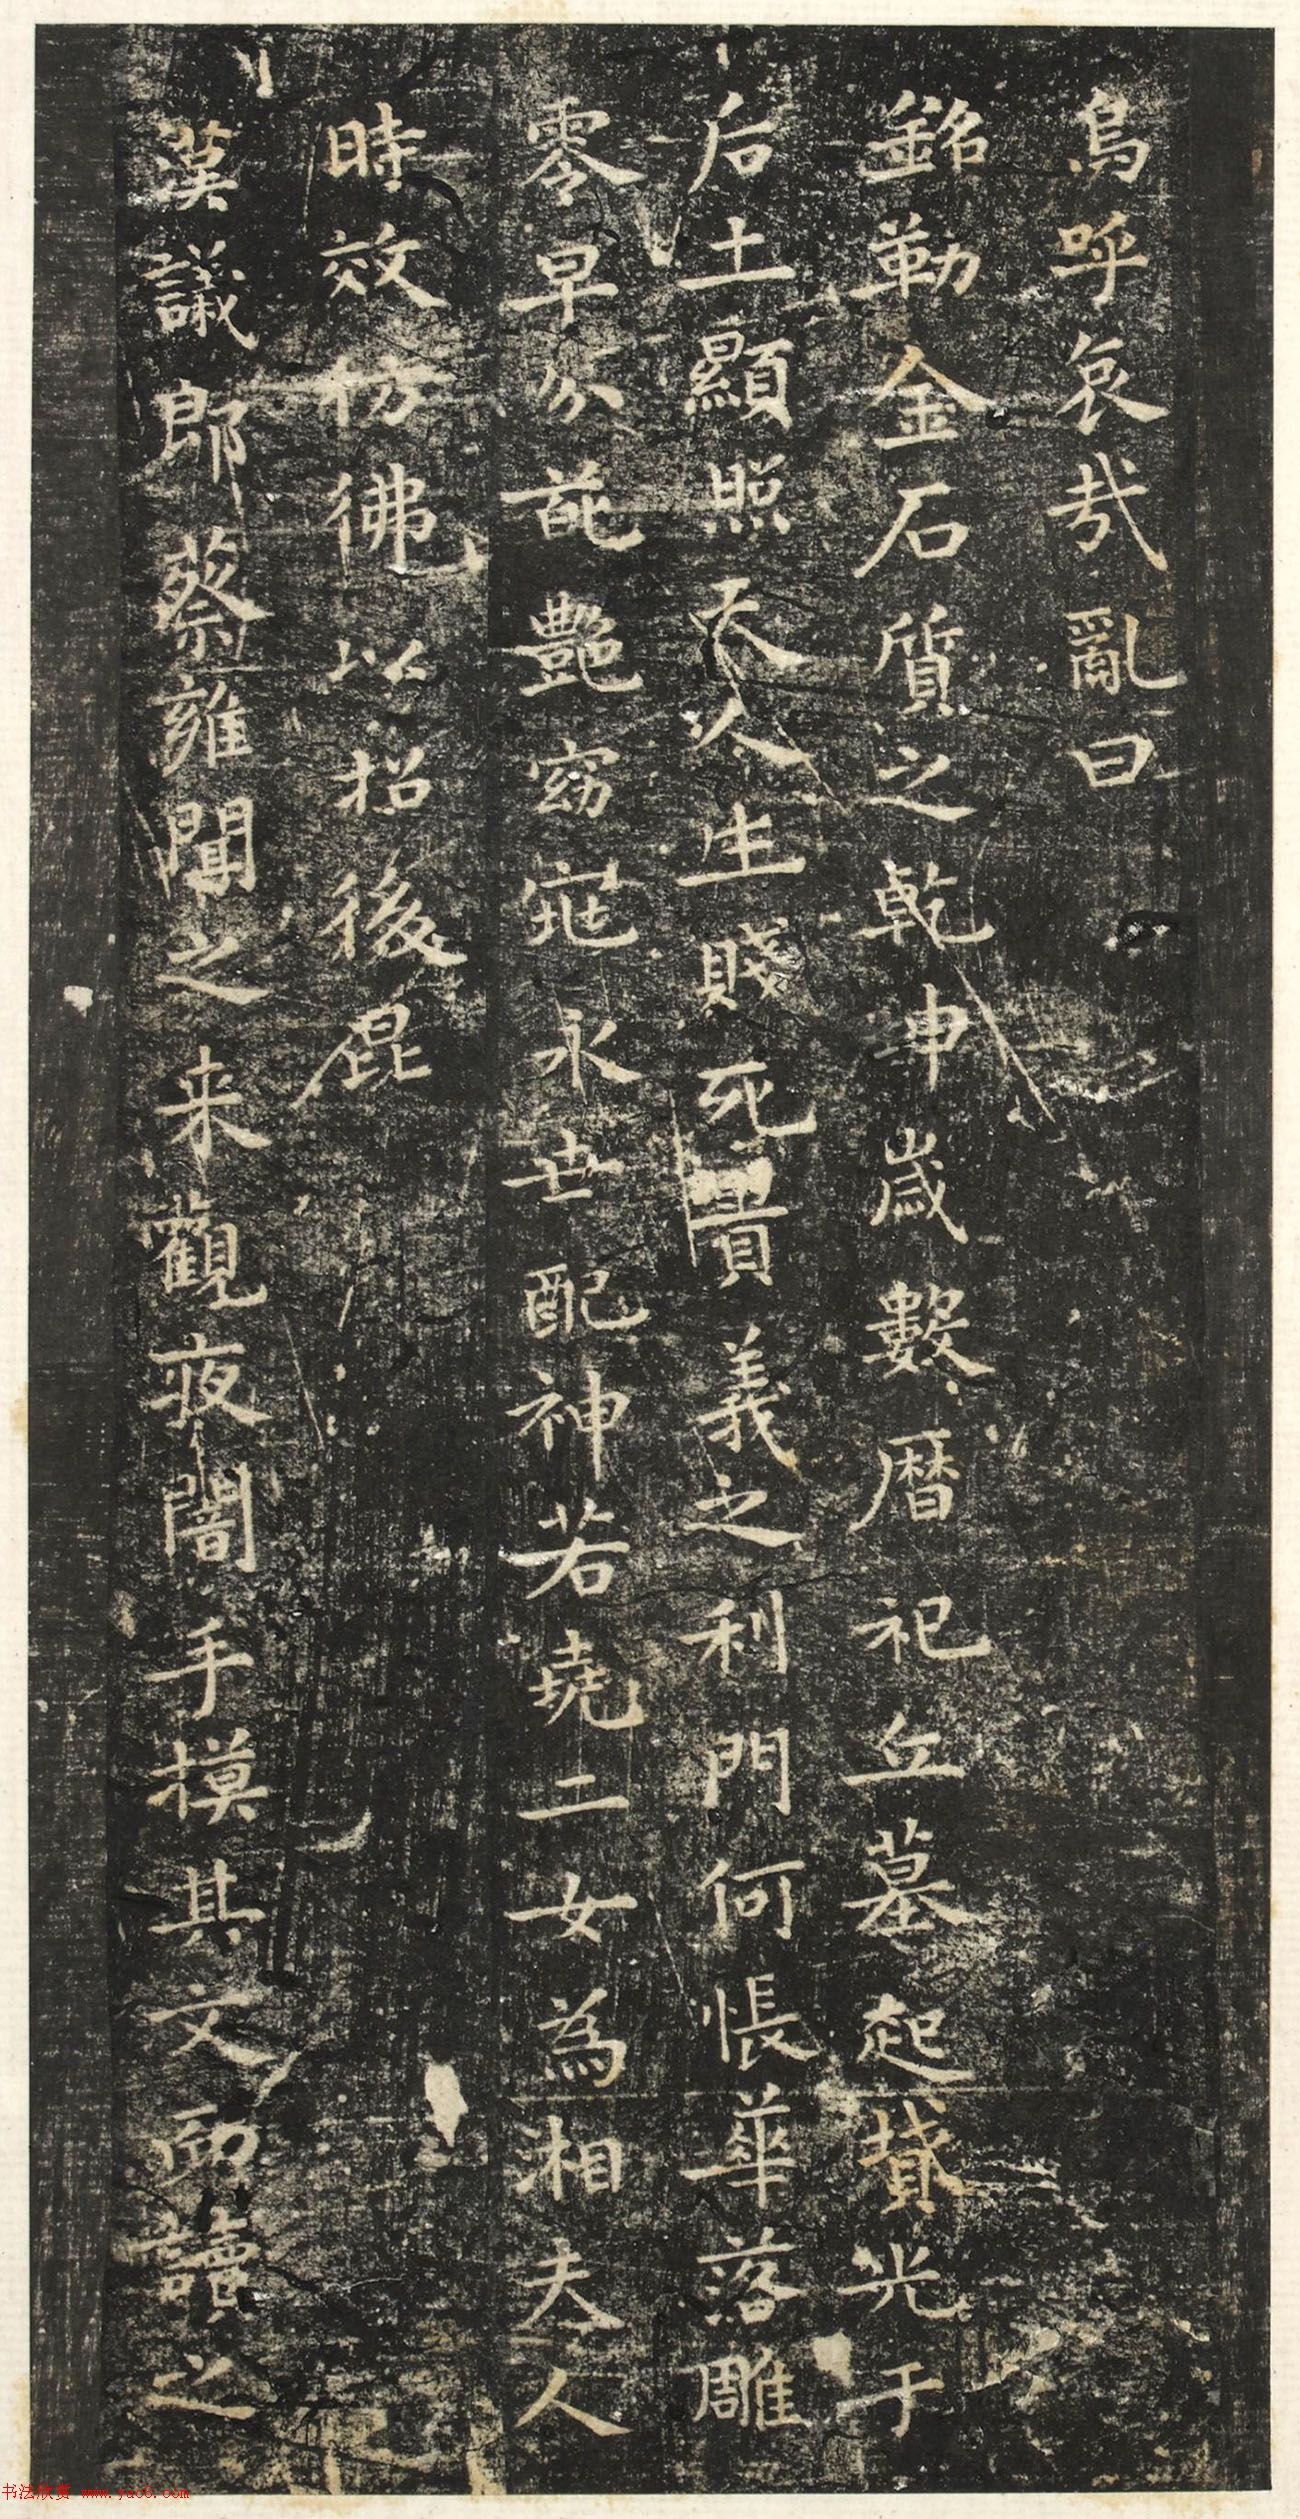 烏呼哀哉亂曰
銘勒金石質之乾坤歲數曆祀丘墓起墳光于
后土顯照天人生賤死貴義之利門何悵華落雕
零早分葩艷窈窕永世配神若堯二女為湘夫人
時效仿佛以招後昆
漢議郎蔡雍聞之来觀夜闇手摸其文而讀之
书法欣赏 www.yac8.com